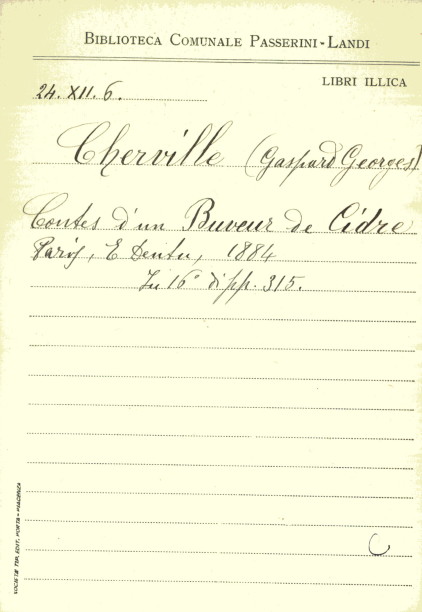 BIBLIOTECA COMUNALE PASSERINI-LANDI
LIBRI ILLICA
24. XII. 6.
Cherville (Gaspard Georges)
Contes d'un Buveur de Cidre
Paris, E Dentu, 1884
In 16° di pp. 315.
C
SOCIETÀ TIP. EDIT. PORTA - PIACENZA